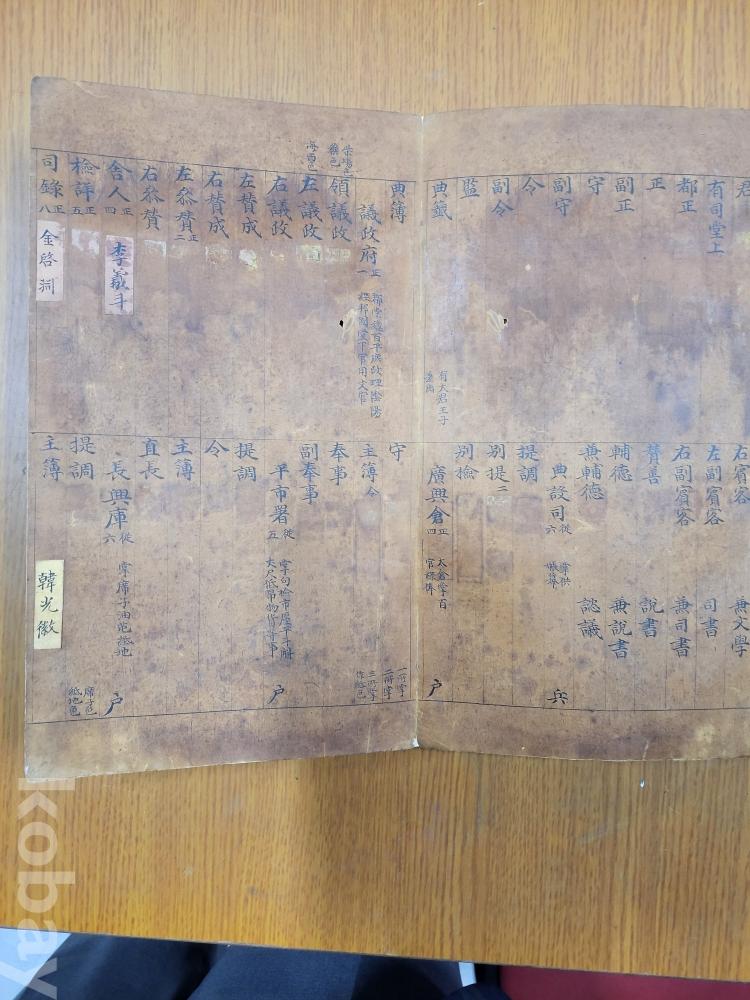 君
有司堂上
都正
正
副正
守
副守
令
副令
監
典籤
有大君王子
典簿
議政府 正一
領議政
左議政
右議政
左贊成
右贊成
左參贊 正二
右參贊
舍人 正四
李羲斗
檢詳 正五
司錄 正八
金啓洞
右賓客
兼文學
左副賓客
司書
右副賓客
兼司書
贊善
說書
輔德
兼說書
兼輔德
諮議
典設司 從六
兵
提調
別提 二
別檢
廣興倉 正四
太倉掌百
官祿俸
戶
守
主簿 令
奉事
副奉事
平市署 從五
掌句檢市廛平斗斛
丈尺低昻物貨等事
戶
提調
令
主簿
直長
長興庫 從六
掌席子油芚紙地
戶
提調
席子色
紙地色
主簿
韓光徽
kobay